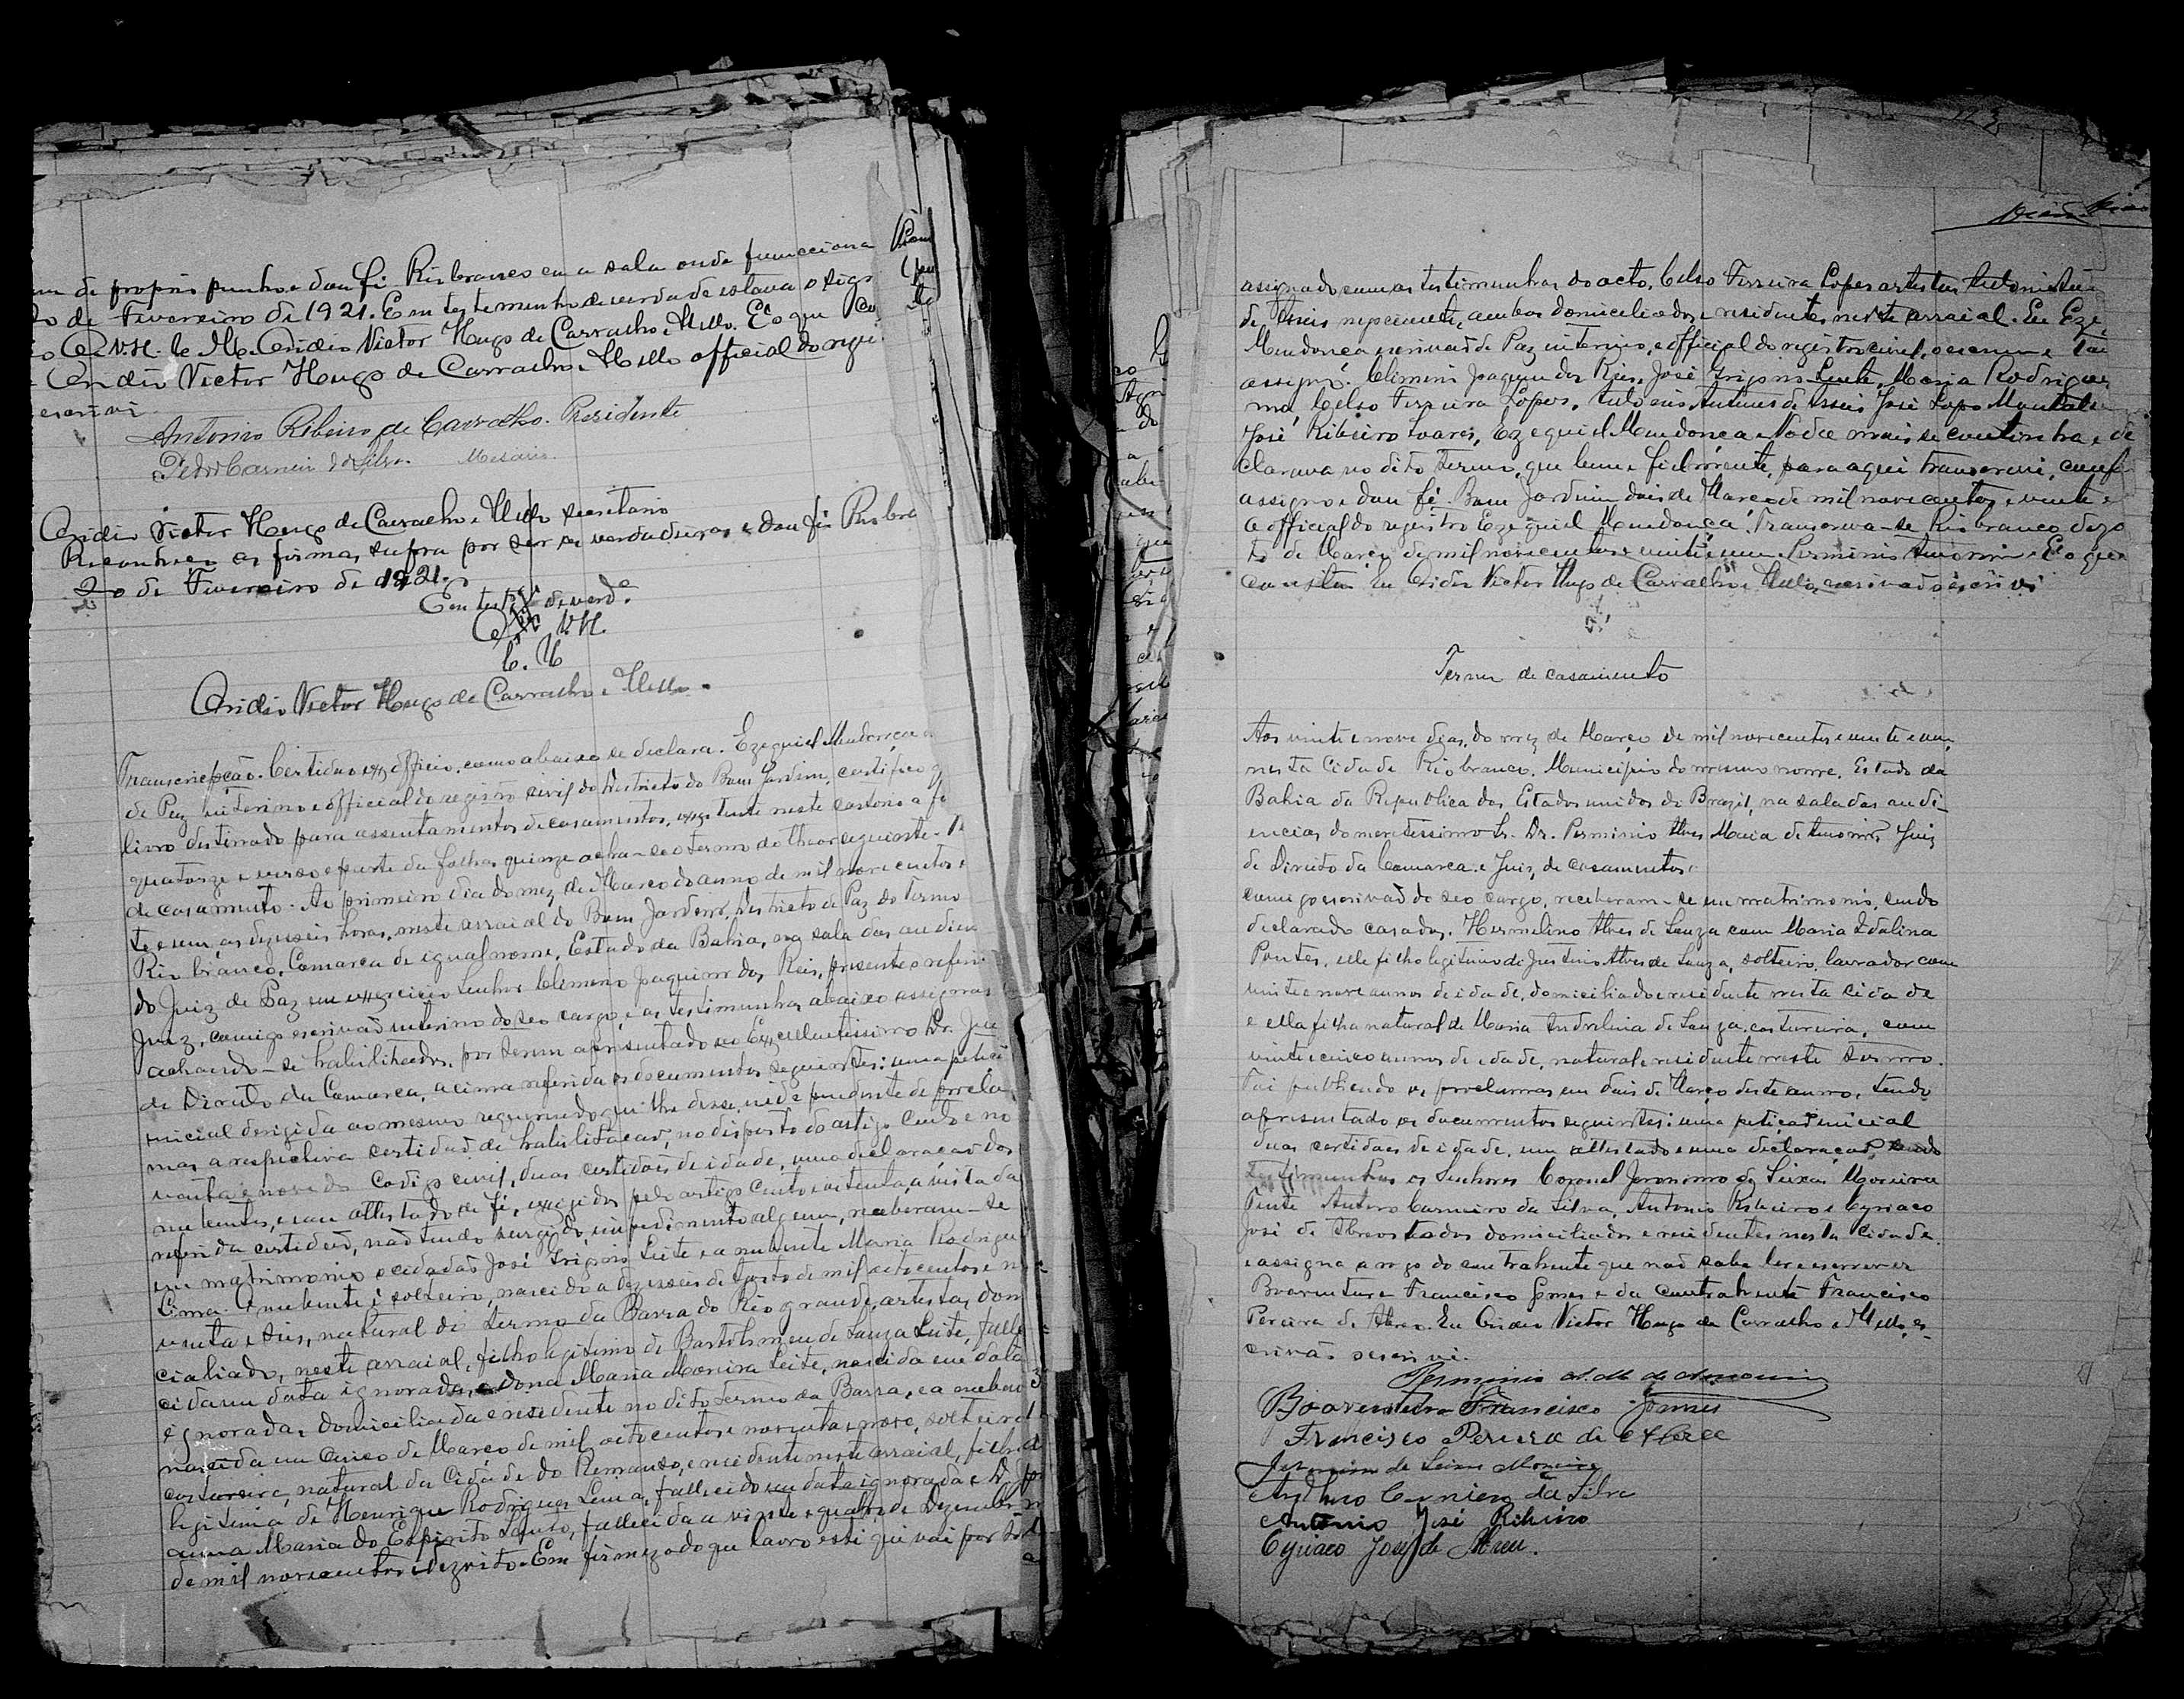 de proprio punho e dou fé. Rio branco em a sala onde funcciona
de Fevereiro de 1921. Em testemunho de verdade estava o sig
V.H. C. M. Victor Hugo de Carvalho e Mello. E o que
Victor Hugo de Carvalho e Mello official do
escrivi
Antonio Ribeiro de Carvalho. Presidente
Pedro Carneiro da Silva. Mesario
Victor Hugo de Carvalho e Mello secretario
Reconheço as firmas supra por ser as verdadeiras e dou fé Rio bra
20 de Fevereiro de 1921.
Em testº de verdº
V.H.
C. M
Victor Hugo de Carvalho e Mello.
Transcripção. Certidão ex officio, como abaixo se declara. Ezequiel Mendonca
de Paz interino e official do registro civil do Districto do Bom Jardim, certifico q
livro destinado para assentamentos de casamentos, existente neste cartorio a fo
quatorze e verso e parte da folhas quinze acha-se o termo do theor seguinte. Te
de casamento. Ao primeiro dia do mez de Março do anno de mil nove centos e
te e um, as dezeseis horas, neste arraial do Bom Jardim, Districto de Paz do Termo
Rio branco, Comarca de igual nome, Estado da Bahia, na sala das audien
do Juiz de Paz em exercicio Senhor Climerio Joaquim dos Reis, presente o referi
Juiz, comigo escrivaõ interino do seo cargo, e as testimunhas abaixo assignas
achando-se habilitados, por terem apresentado ao Excellentissimo Dr. Jui
de Direito da Comarca, acima referida os documentos seguintes: uma petiçaõ
inicial dirigida ao mesmo requerendo que lhe desse, independente de procla
mas a respectiva certidaõ de habilitacaõ, no disposto do artigo Cento e no
venta e nove do Codigo civil, duas certidões de idade, uma declaracaõ dos
nubentes, e um attestado de fé, exigidos pelo artigo Cento e oitenta, a vista da
referida certidaõ, naõ tendo surgido impedimento algum, receberam-se
em matrimonio o cidadaõ José Leite e a nubente Maria Rodrigues
Lima. O nubente é solteiro, nascido a dezeseis de de mil oitocentos e n
venta e tres, natural do termo da Barra do Rio grande, artista, dom
ciliado, neste arraial, filho legitimo de Bartholomeu de Souza Leite, falle
cido em data ignorada, e Dona Maria Moreira Leite, nascida em data
ignorada, domiciliada e residente no dito termo da Barra, e a nubente
nascida em cinco de Março de mil oitocentos e noventa e nove, solteira
costureira, natural da Cidade do Remanso, e residente neste arraial, filha
legitima de Henrique Rodrigues Lima, fallecido em data ignorada e D.
anna Maria do Espirito Santo, fallecida a vinte e quatro de Dezembro
de mil novecentos e dezoito. Em firmeza do que lavro este que vai por to
assignado com as testimunhas do acto, Celso Ferreira Lopes artista Antonio
de Assis negociante, ambos domiciliados e residentes neste arraial. Eu Eze
Mendonca escrivaõ de Paz interino, e official do registro civil, o escrevi e
assigno. Climerio Joaquim dos Reis, José Leite, Maria Rodrigues
ma, Celso Ferreira Lopes, Antunes de Assis José Lopo
José Ribeiro Soares, Ezequiel Mendonca. Nada mais se continha e de
clarava no dito termo, que bem e fielmente, para aqui transcrevi, confe
assigno e dou fé. Bom Jardim dois de Março de mil nove centos e vinte e
O official do registro Ezequiel Mendonca. Transcreva-se Rio branco dezo
to de Março de mil novecentos e vinte e um Perminio Amorim. E o que
consta. Eu Victor Hugo de Carvalho e Mello escrivaõ o escrivi
Termo de casamento
Aos vinte e nove dias, do mez de Março de mil novecentos e vinte e um,
nesta Cidade Rio branco, Municipio do mesmo nome, Estado da
Bahia da Republica dos Estados unidos do Brazil, na sala das audi-
encias do meretissimo Sr. Dr. Perminio Alves Maia de Amorim, Juiz
de Direito da Comarca e Juiz de casamentos,
comigo escrivaõ do seo cargo, receberam-se em matrimonio, sendo
declarado casados, Hermelino Alves de Souza com Maria Idalina
Pontes, elle filho legitimo de Justino Alves de Souza, solteiro, lavrador com
vinte e nove annos de idade, domiciliado e residente nesta Cidade
e ella filha natural de Maria Andrelina de Souza, costureira, com
vinte e cinco annos de idade, natural e residente neste termo.
Foi publicado os proclamas em dois de Março deste anno, tendo
apresentado os documentos seguintes: uma petiçaõ inicial
duas certidões de idade, um attestado e uma declaraçaõ, sendo
testimunhas os Senhores Coronel Jeronimo de Seixas Moreira
Tente Antero Carneiro da Silva, Antonio Ribeiro e Cyriaco
José de Abreo todos domiciliados e residentes nesta Cidade.
e assigna a rogo do contrahente que naõ sabe ler e escrever
Boaventura Francisco Gomes e da contrahente Francisco
Pereira de Abreo. Eu Victor Hugo de Carvalho e Mello, es-
crivaõ o escrivi.
Perminio A. M. de Amorim
Boaventura Francisco Gomes
Francisco Pereira de Abreo
Jeronimo de Seixas Moreira
Carneiro da Silva
Antonio José Ribeiro
Cyriaco José de Abreu.